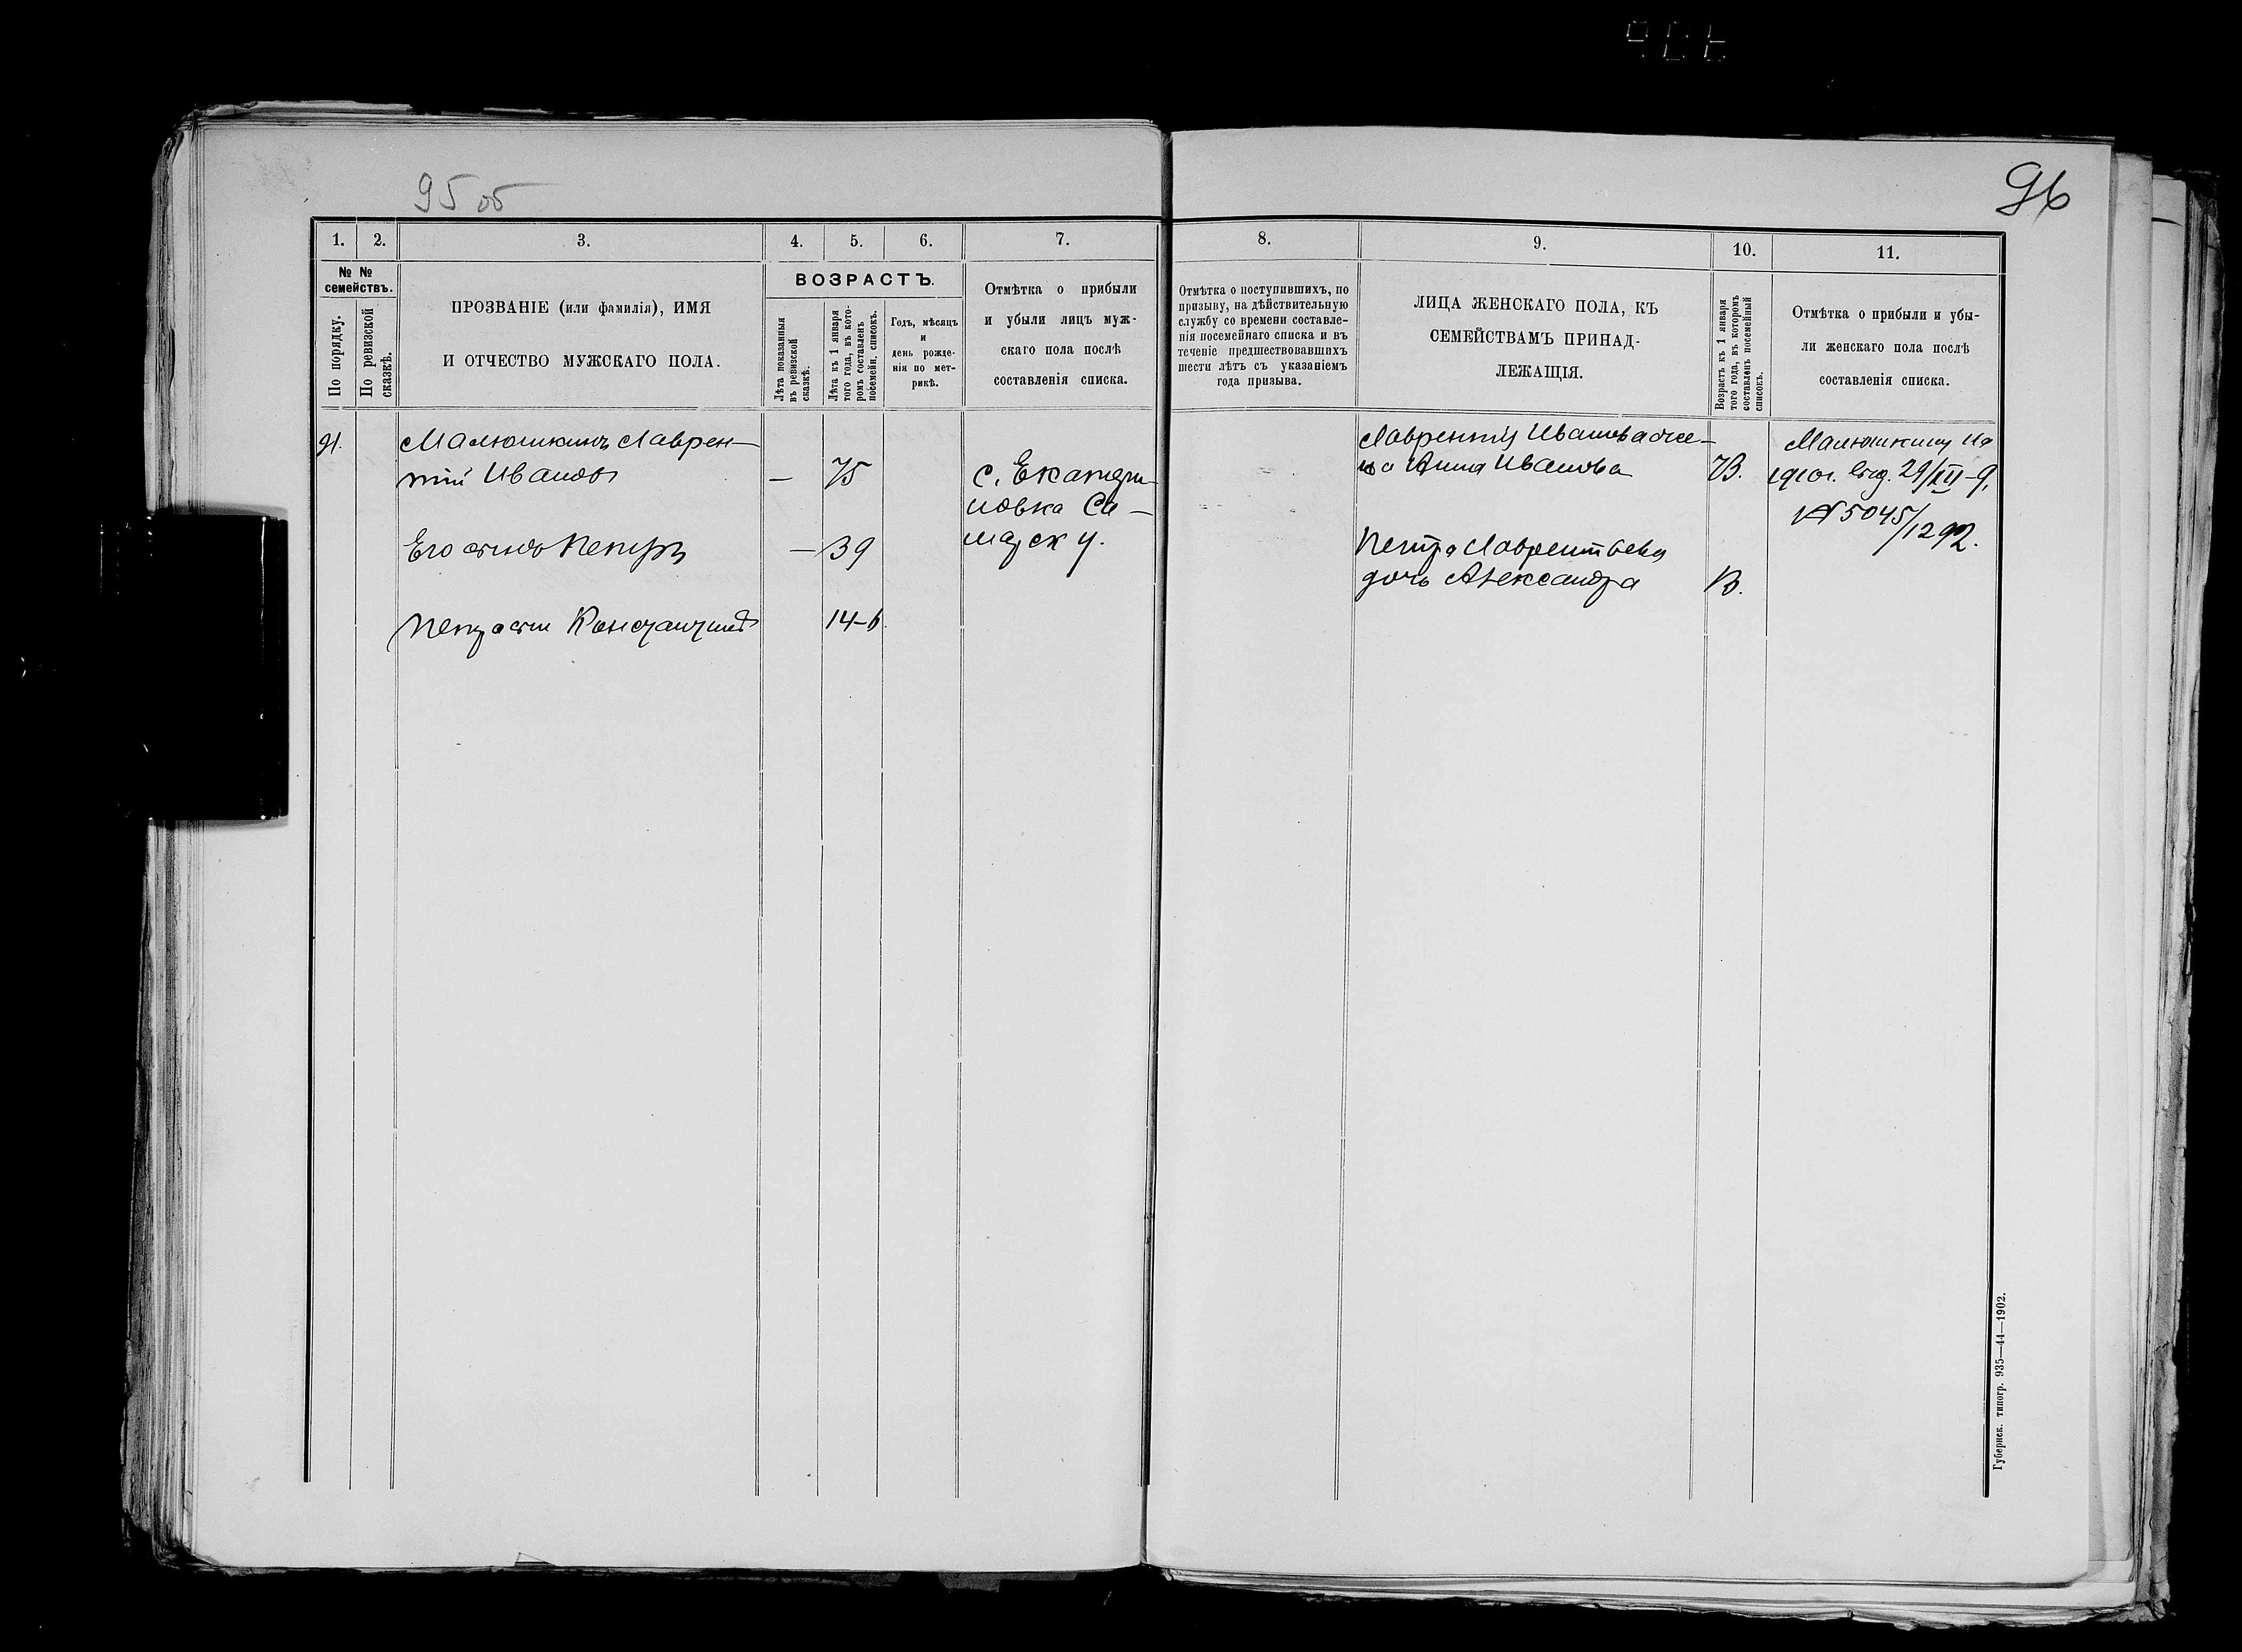 95 об
96
1. 2. 3. 4. 5. 6. 7. 8. 9. 10. 11.
№ №
семействъ.
По порядку.
По ревизской
сказкѣ.
ПРОЗВАНІЕ (или фамилія), ИМЯ
И ОТЧЕСТВО МУЖСКАГО ПОЛА.
ВОЗРАСТЪ.
Лѣта показанныя
въ ревизской
сказкѣ.
Лѣта къ 1 января
того года, въ кото-
ромъ составленъ
посемейн. списокъ.
Годъ, мѣсяцъ
и
день рожде-
нія по мет-
рикѣ.
Отмѣтка о прибыли
и убыли лицъ муж-
скаго пола послѣ
составленія списка.
Отмѣтка о поступившихъ, по
призыву, на дѣйствительную
службу со времени составле-
нія посемейнаго списка и въ
теченіе предшествовавшихъ
шести лѣтъ съ указаніемъ
года призыва.
ЛИЦА ЖЕНСКАГО ПОЛА, КЪ
СЕМЕЙСТВАМЪ ПРИНАД-
ЛЕЖАЩІЯ.
Возрастъ къ 1 января
того года, въ которомъ
составленъ посемейный
списокъ.
Отмѣтка о прибыли и убы-
ли женскаго пола послѣ
составленія списка.
91.
Малюшкинъ Лаврен-
тій Ивановъ — 75
Его сынъ Петръ — 39
Петра сын Константинъ 14-6.
с. Екатери-
новка Са-
марск у.
Лаврентія Иванова же-
на Анна Иванова 73.
Петра Лаврентьева
дочь Александра 13.
Малюшкину на
1910г. 29/XII-9,
№ 5045/1292.
Губернск. типогр. 935—44—1902.